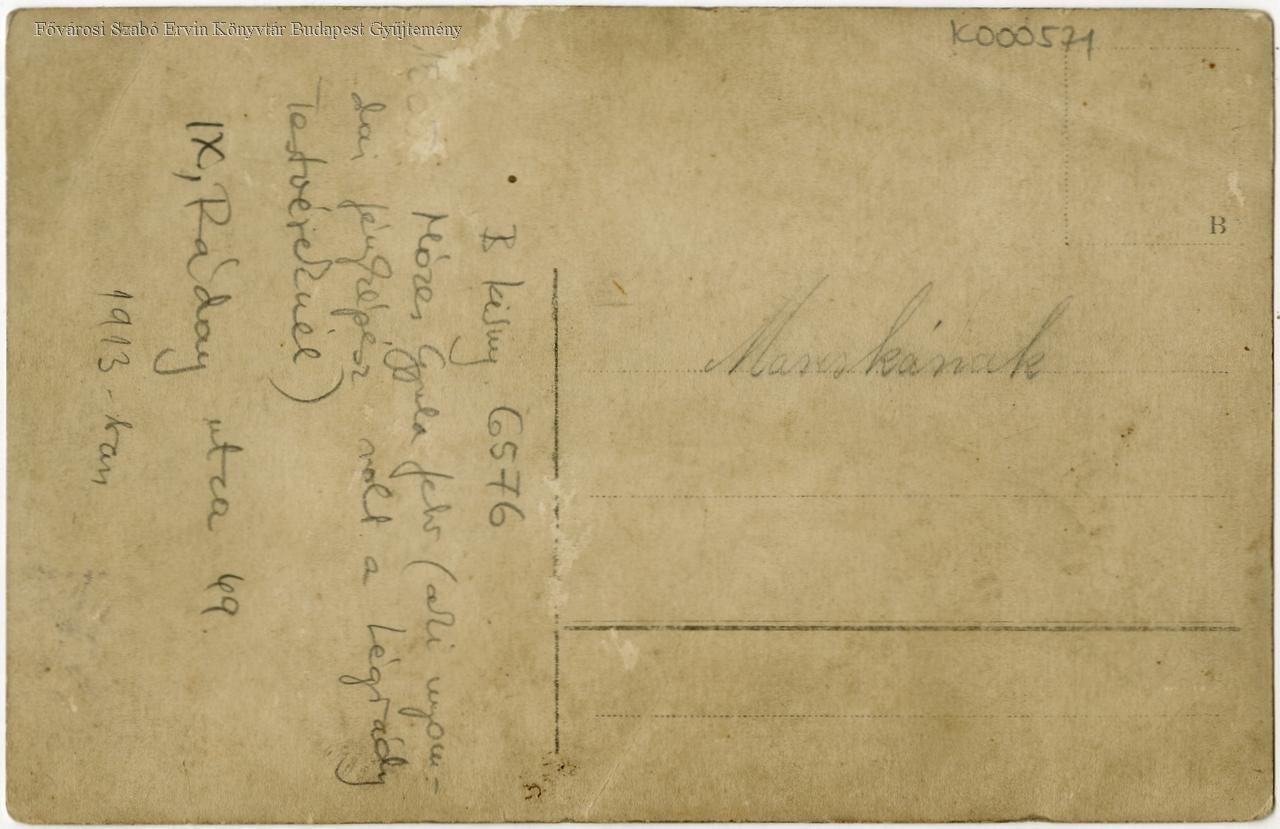 Fővárosi Szabó Ervin Könyvtár Budapest Gyűjtemény
K000571
B
Mariskának
B 6576
Mózes Gyula felv (aki nyom-
dai fényképész volt a Légrády
Testvéreknél)
IX, Ráday utca 49
1913-ban